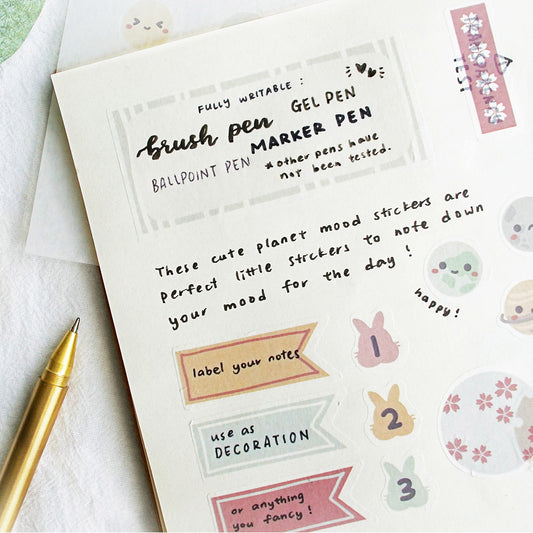 FULLY WRITABLE :
brush pen GEL PEN
BALLPOINT PEN MARKER PEN
*other pens have
not been tested.
These cute planet mood stickers are
perfect little stickers to note down
your mood for the day !
happy!
label your notes
1
use as
DECORATION
2
or anything
you fancy!
3
TEST